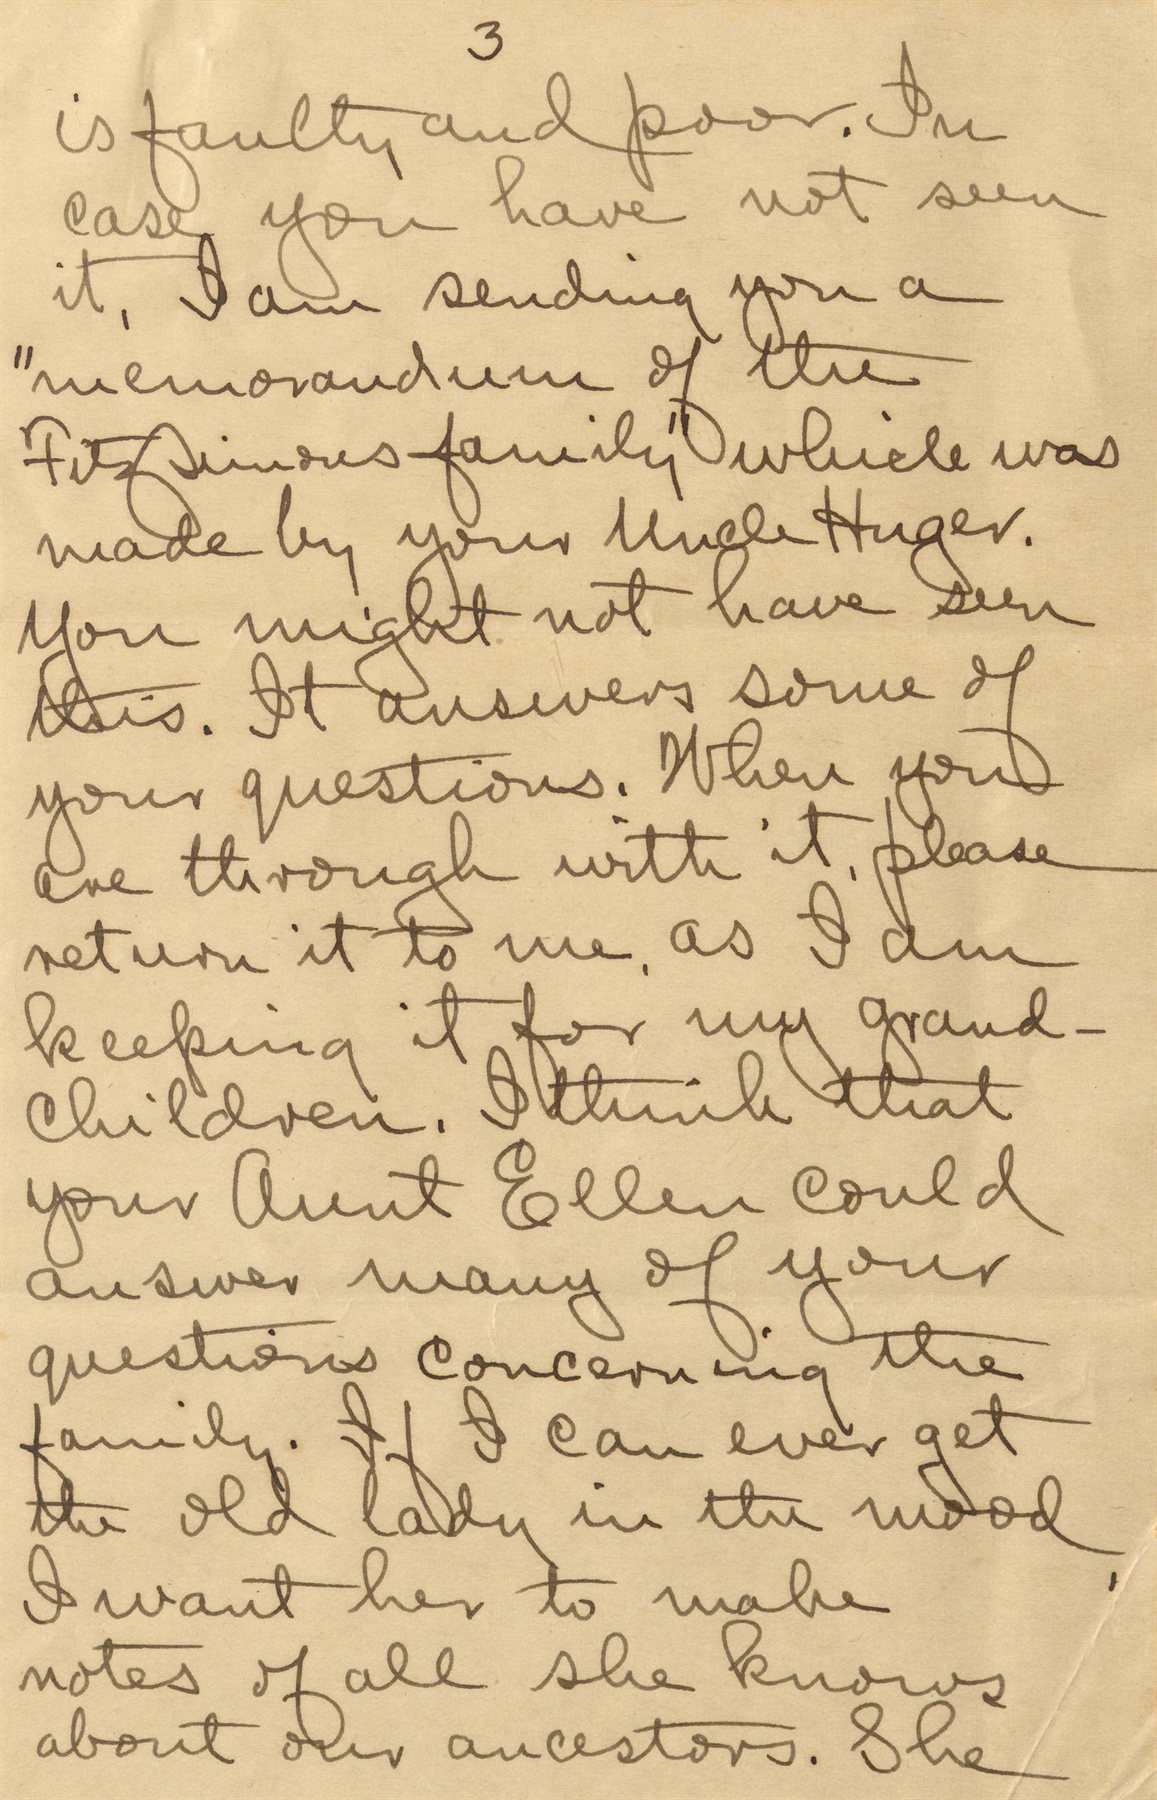 3
is faulty and poor. In
case you have not seen
it, I am sending you a
"memorandum of the
FitzSimons family" which was
made by your Uncle Huger.
You might not have seen
this. It answers some of
your questions. When you
are through with it, please
return it to me, as I am
keeping it for my grand-
children. I think that
your Aunt Ellen could
answer many of your
questions concerning the
family. If I can ever get
the old lady in the mood,
I want her to make
notes of all she knows
about our ancestors. She